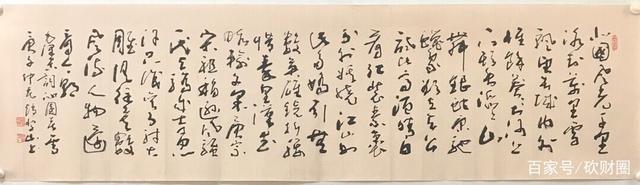 北国风光千里
冰封万里雪
飘望长城内外
惟余莽莽大河上
下顿失滔滔山
舞银蛇原驰
蜡象欲与天公
试比高须晴日
看红装素裹
分外妖娆江山如
此多娇引无
数英雄竞折腰
惜秦皇汉武
略输文采唐宗
宋祖稍逊风骚
一代天骄成吉思
汗只识弯弓射大
雕俱往矣数
风流人物还
看今朝
毛泽东词沁园春雪
庚子
百家号/砍财圈